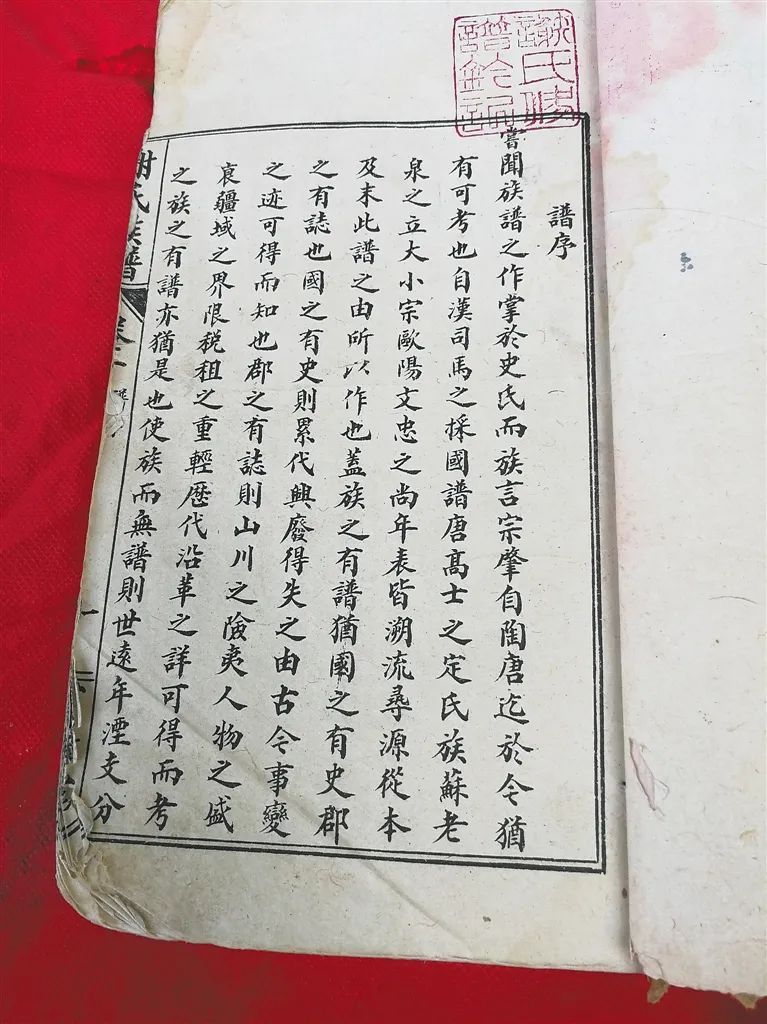 謝氏修
譜鈐記
譜序
嘗聞族譜之作掌於史氏而族言宗肇自陶唐迄於今猶
有可考也自漢司馬之採國譜唐髙士之定氏族蘇老
泉之立大小宗歐陽文忠之尚年表皆溯流尋源從本
及末此譜之由所以作也蓋族之有譜猶國之有史郡
之有誌也國之有史則累代興廢得失之由古今事變
之迹可得而知也郡之有誌則山川之險夷人物之盛
衰疆域之界限税租之重輕歷代沿革之詳可得而考
之族之有譜亦猶是也使族而無譜則世遠年湮支分
謝氏族譜
卷
一